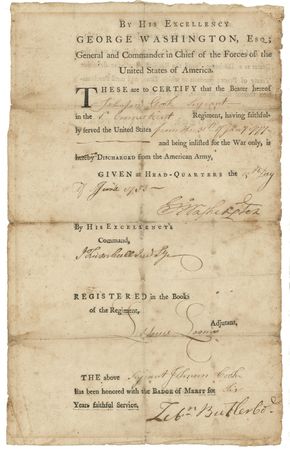 BY HIS EXCELLENCY
GEORGE WASHINGTON, ESQ;
General and Commander in Chief of the Forces of the
United States of America.
THESE are to CERTIFY that the Bearer hereof
Johnson Cook Serjeant
in the Connecticut Regiment, having faithful-
ly served the United States from
and being inlisted for the War only, is
hereby DISCHARGED from the American Army.
GIVEN at HEAD-QUARTERS the Day
of June 1783
G Washington
By HIS EXCELLENCY's
Command,
J Trumbull Jun
REGISTERED in the Books
of the Regiment,
Adjutant,
THE above Serjeant Johnson Cook
has been honored with the BADGE of MERIT for
Years faithful Service.
Zebn Butler Col